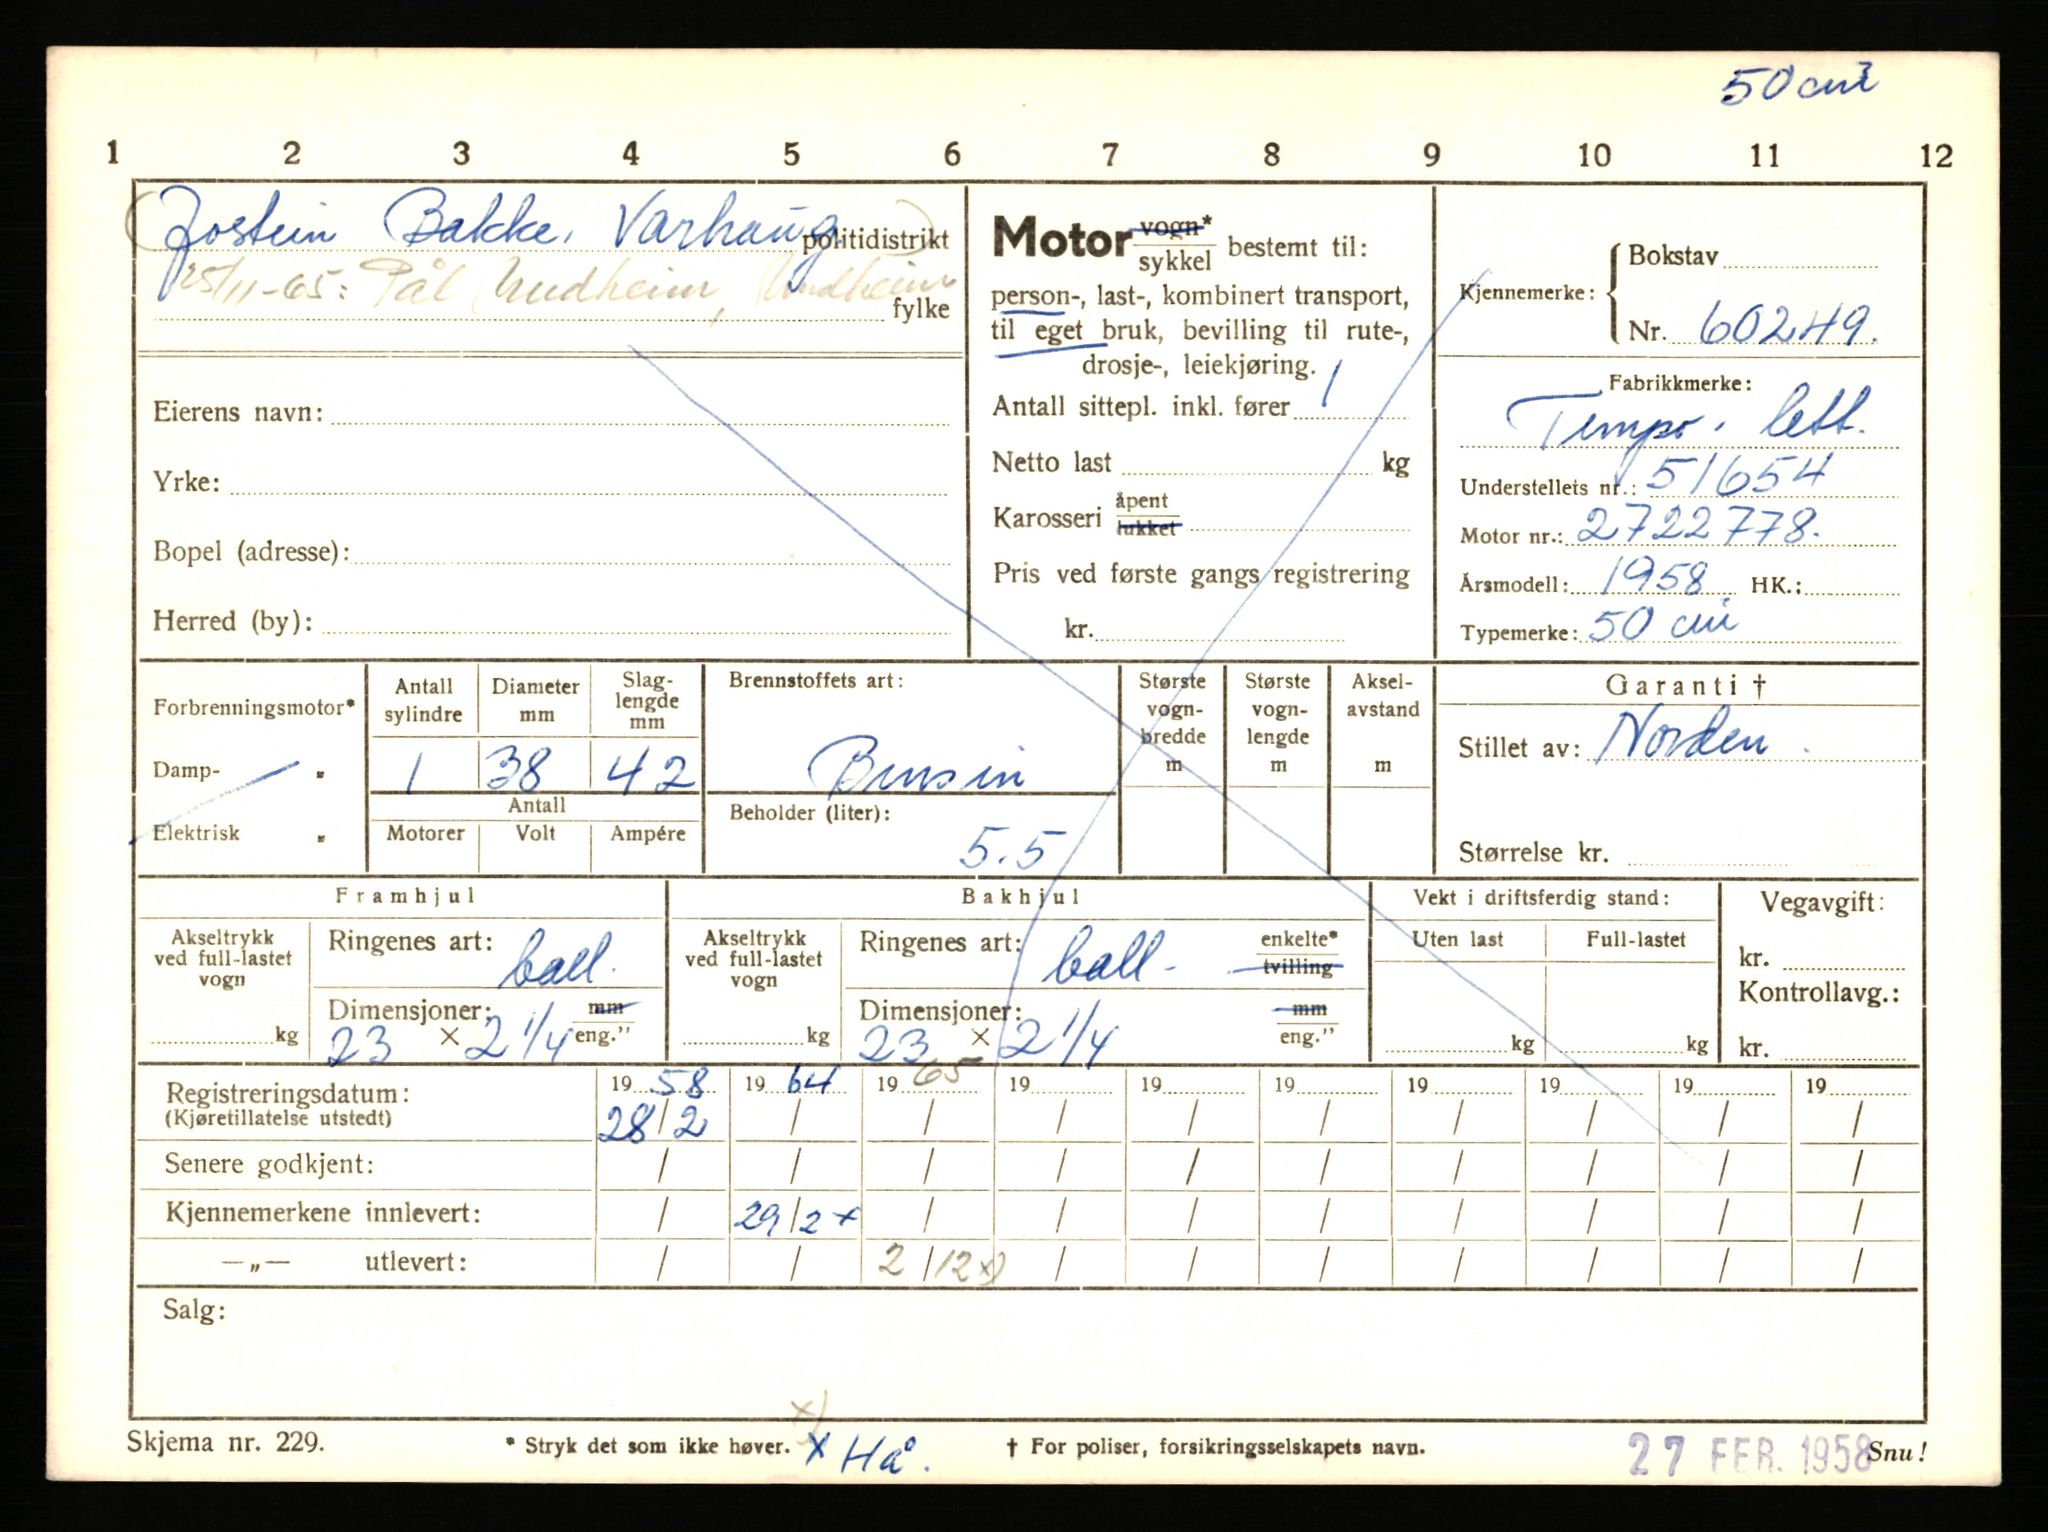 50 cm³
1 2 3 4 5 6 7 8 9 10 11 12
(Jostein Bakke, Varhaug) politidistrikt
25/11-65: Pål Undheim, Undheim
fylke
Eierens navn:
Yrke:
Bopel (adresse):
Herred (by):
Motor vogn* / sykkel bestemt til:
person-, last-, kombinert transport,
til eget bruk, bevilling til rute-,
drosje-, leiekjøring.
Antall sittepl. inkl. fører 1
Netto last kg
Karosseri åpent / lukket
Pris ved første gangs registrering
kr.
Kjennemerke: Bokstav
Nr. 60249.
Fabrikkmerke:
Tempo. lett.
Understellets nr.: 51654
Motor nr.: 2722778.
Årsmodell: 1958 HK.:
Typemerke: 50 cm³
Forbrenningsmotor*
Damp- „
Elektrisk „
Antall sylindre
Diameter mm
Slag-lengde mm
1 38 42
Antall
Motorer Volt Ampére
Brennstoffets art:
Bensin
Beholder (liter):
5.5
Største vogn-bredde m
Største vogn-lengde m
Aksel-avstand m
Garanti †
Stillet av: Norden.
Størrelse kr.
Framhjul
Akseltrykk ved full-lastet vogn
kg
Ringenes art: ball.
Dimensjoner: mm / eng."
23 × 2 1/4
Bakhjul
Akseltrykk ved full-lastet vogn
kg
Ringenes art: ball- enkelte* / tvilling
Dimensjoner: mm / eng."
23 × 2 1/4
Vekt i driftsferdig stand:
Uten last Full-lastet
kg kg
Vegavgift:
kr.
Kontrollavg.:
kr.
Registreringsdatum: 19 58 19 64 19 65 19 19 19 19 19 19 19
(Kjøretillatelse utstedt) 28/2 / / / / / / / / /
Senere godkjent: / / / / / / / / / /
Kjennemerkene innlevert: / 29/2 x / / / / / / / /
—„— utlevert: / / 2/12 x) / / / / / / /
Salg:
x)
Skjema nr. 229. * Stryk det som ikke høver. x Hå. † For poliser, forsikringsselskapets navn. 27 FEB. 1958 Snu!